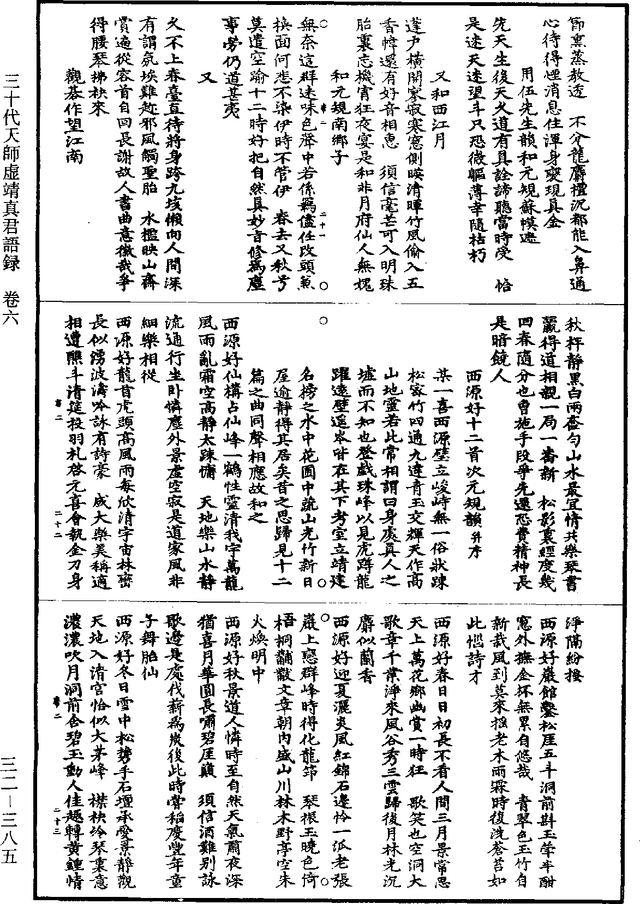 三十代天師虛靖真君語錄　卷六
三二—三八五
節窯蒸教透　不分龍麝檀沉都能入鼻通
心待得煙消息住渾身變現真金
用伍先生韻和元規蘇幙遮
先天生後天火道有真詮諦聽當時受　恰
是迷天達望斗只恐微軀薄幸隨枯朽
又和西江月
蓬戶橫開寥寂寒窻側暎清暉竹風偷入五
香幃還有好音相惠　須信毫芒可入明珠
胎裏忘機宵狂夜宴是和非月府仙人無媿
和元規南鄉子
無奈這群迷味色齊中若係羈儘任改頭兼
換面何悲不染伊時不管伊　春去又秋兮
莫遣空踰十二時好把自然真妙音修爲塵
事勞仍道甚夷
又
久不上春臺直待將身跨九垓懶向人間深
有謂氣埃難趂邪風觸聖胎　水檻映山齋
賞遍從容首自回長謝故人書曲意微哉爭
得腰琴拂袂來
觀碁作望江南
秋枰靜黑白兩奩勻山水最宜情共樂琴書
贏得道相親一局一番新　松影裏經度幾
回春隨分也曾施手段爭先還恐費精神長
是暗饒人
西源好十二首次元規韻并序
某一喜西源壁立峻峙無一俗狀踈
松密竹四通九達青玉交輝天作高
山地靈若此常相謂曰身處真人之
墟而不知也整戲珠峰以見虎蹲龍
躍遠壁遥岑咁在其下考室立靖建
名榜之水中花圃中蔬山光竹新日
屋逾靜得其居矣昔之思歸見十二
篇之曲同聲相應故和之
西源好仙構占仙峰一鶴性靈清我宇萬龍
風雨亂霜空高靜太踈慵　天地樂山水靜
流通行坐臥憐塵外景虛空寂是道家風非
細樂相從
西源好龍首虎頭高風雨每欣清字宙林密
長似湧波濤吟詠有詩豪　咸大樂美稱適
相遭隱斗清筵投羽札啓元喜會執金刀身
淨隔紛挼
西源好巖館鑿松厓五斗洞前斟玉斝半酣
窻外撫金杯無累自悠哉　青翠色玉竹自
新栽風到莫來搖老木雨霖時復洗蒼苔如
此惱詩才
西源好春日日初長不看人間三月景常思
天上萬花鄉幽賞一時狂　歌笑也空洞大
歌章千葉淨來風谷秀三雲歸後月林光沉
麝似蘭香
西源好迎夏灑炎風紅錦石邊怜一派老張
巖上戀群峰時得化龍筇　琴根玉曉色倚
梧桐黼黻文章朝內盛山川林木野亭空朱
火煥明中
西源好秋景道人憐時至自然天氣肅夜深
猶喜月華圓長嘯碧崖巔　須信酒難别詠
歌邊是處伐薪爲炭後此時嘗稻慶豐年童
子舞胎仙
西源好冬日雪中松勢手石壇承愛景靜觀
天地入清宫恰似大茅峰　襟袂冷琴裏意
濃濃吹月洞前含碧玉動人佳趣轉黄鍾情